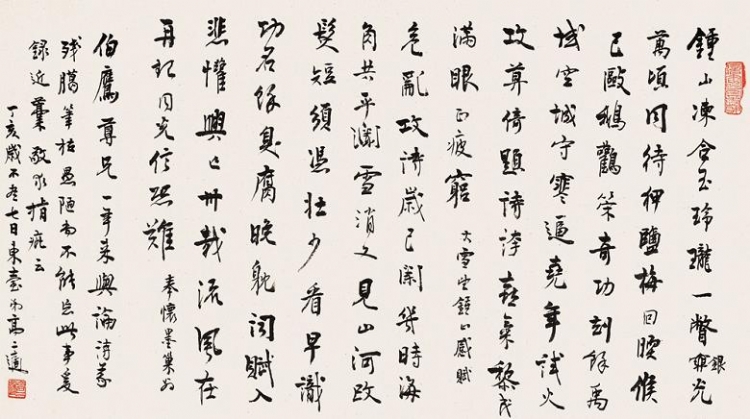 鍾山凍合玉玲瓏一瞥銀光
萬頃同待和鹽梅回暖候
已毆鵝鸛策奇功刻餘禹
域空城守寒逼堯年試火
攻尊倚題詩誇喜氣黎民
滿眼正疲窮 大雪望鍾山感賦
危亂攻詩歲已闌幾時海
角共平瀾雪消又見山河改
髮短須憑壯少看早識
功名餘臭腐晚耽詞賦入
悲懽興亡卅載流風在
再起同光信恐難 奉懷墨巢翁
伯鷹尊兄一年來與論詩義
殘牘筆枯愚陋而不能忘此事爰
錄近藁敬求指疵云
丁亥歲不盡七日東臺弟高二適